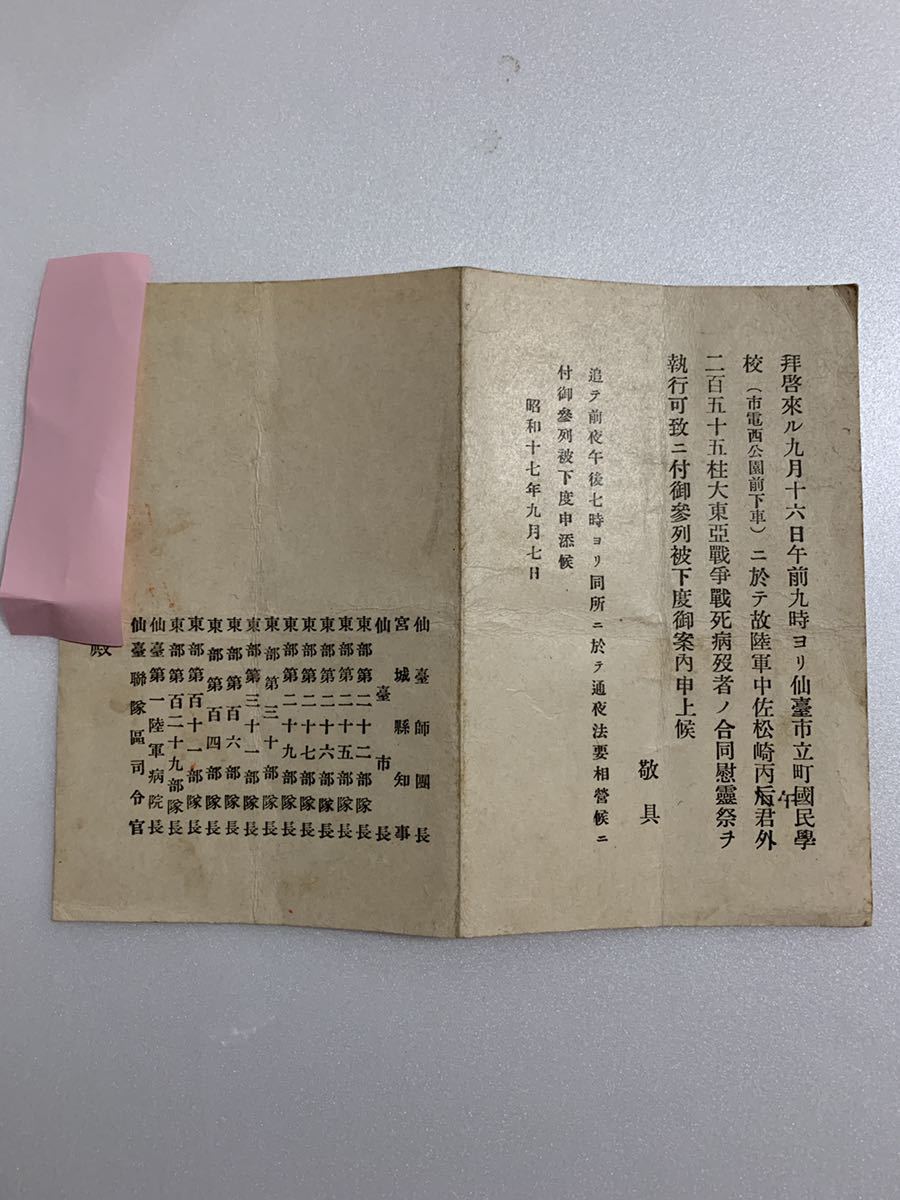 拜啓來ル九月十六日午前九時ヨリ仙臺市立町國民學
校（市電西公園前下車）ニ於テ故陸軍中佐松崎丙午君外
二百五十五柱大東亞戰爭戰死病歿者ノ合同慰靈祭ヲ
執行可致ニ付御參列被下度御案內申上候
敬具
追テ前夜午後七時ヨリ同所ニ於テ通夜法要相營候ニ
付御參列被下度申添候
昭和十七年九月七日
仙臺師團長
宮城縣知事
仙臺市長
東部第二十二部隊長
東部第二十五部隊長
東部第二十六部隊長
東部第二十七部隊長
東部第二十九部隊長
東部第三十部隊長
東部第三十一部隊長
東部第百六部隊長
東部第百四部隊長
東部第百十一部隊長
東部第百二十九部隊長
仙臺第一陸軍病院長
仙臺聯隊區司令官
殿